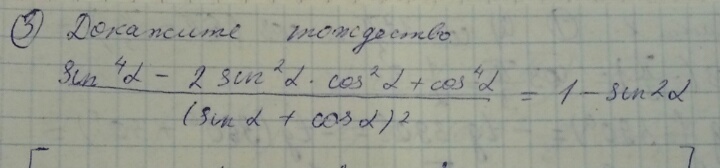 ③ Докажите тождество
sin⁴α - 2 sin²α · cos²α + cos⁴α
= 1 - sin2α
(sin α + cos α)²